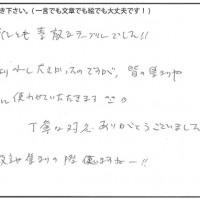 き下さい。（一言でも文章でも絵でも大丈夫です！）
とても 素敵なテーブルでした!!
大きかったのですが、皆の集まりや
使わせていただきます ^^
丁寧な対応 ありがとうございました
集まりの際 使いますねー!!